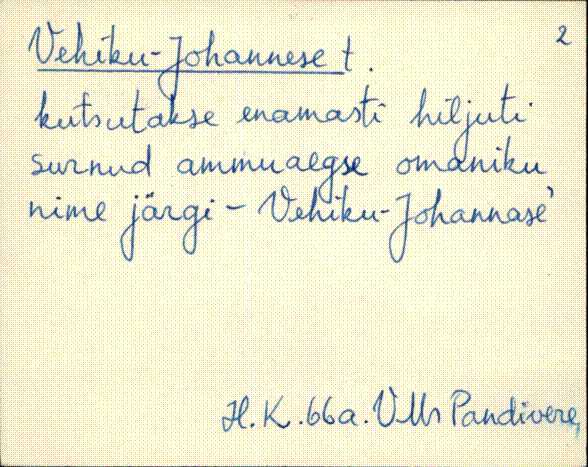 2
Vehiku-Johannese t.
kutsutakse enamasti hiljuti
surnud ammuaegse omaniku
nime järgi - Vehiku-Johannasé
H. K. 66a. VMr Pandivere,